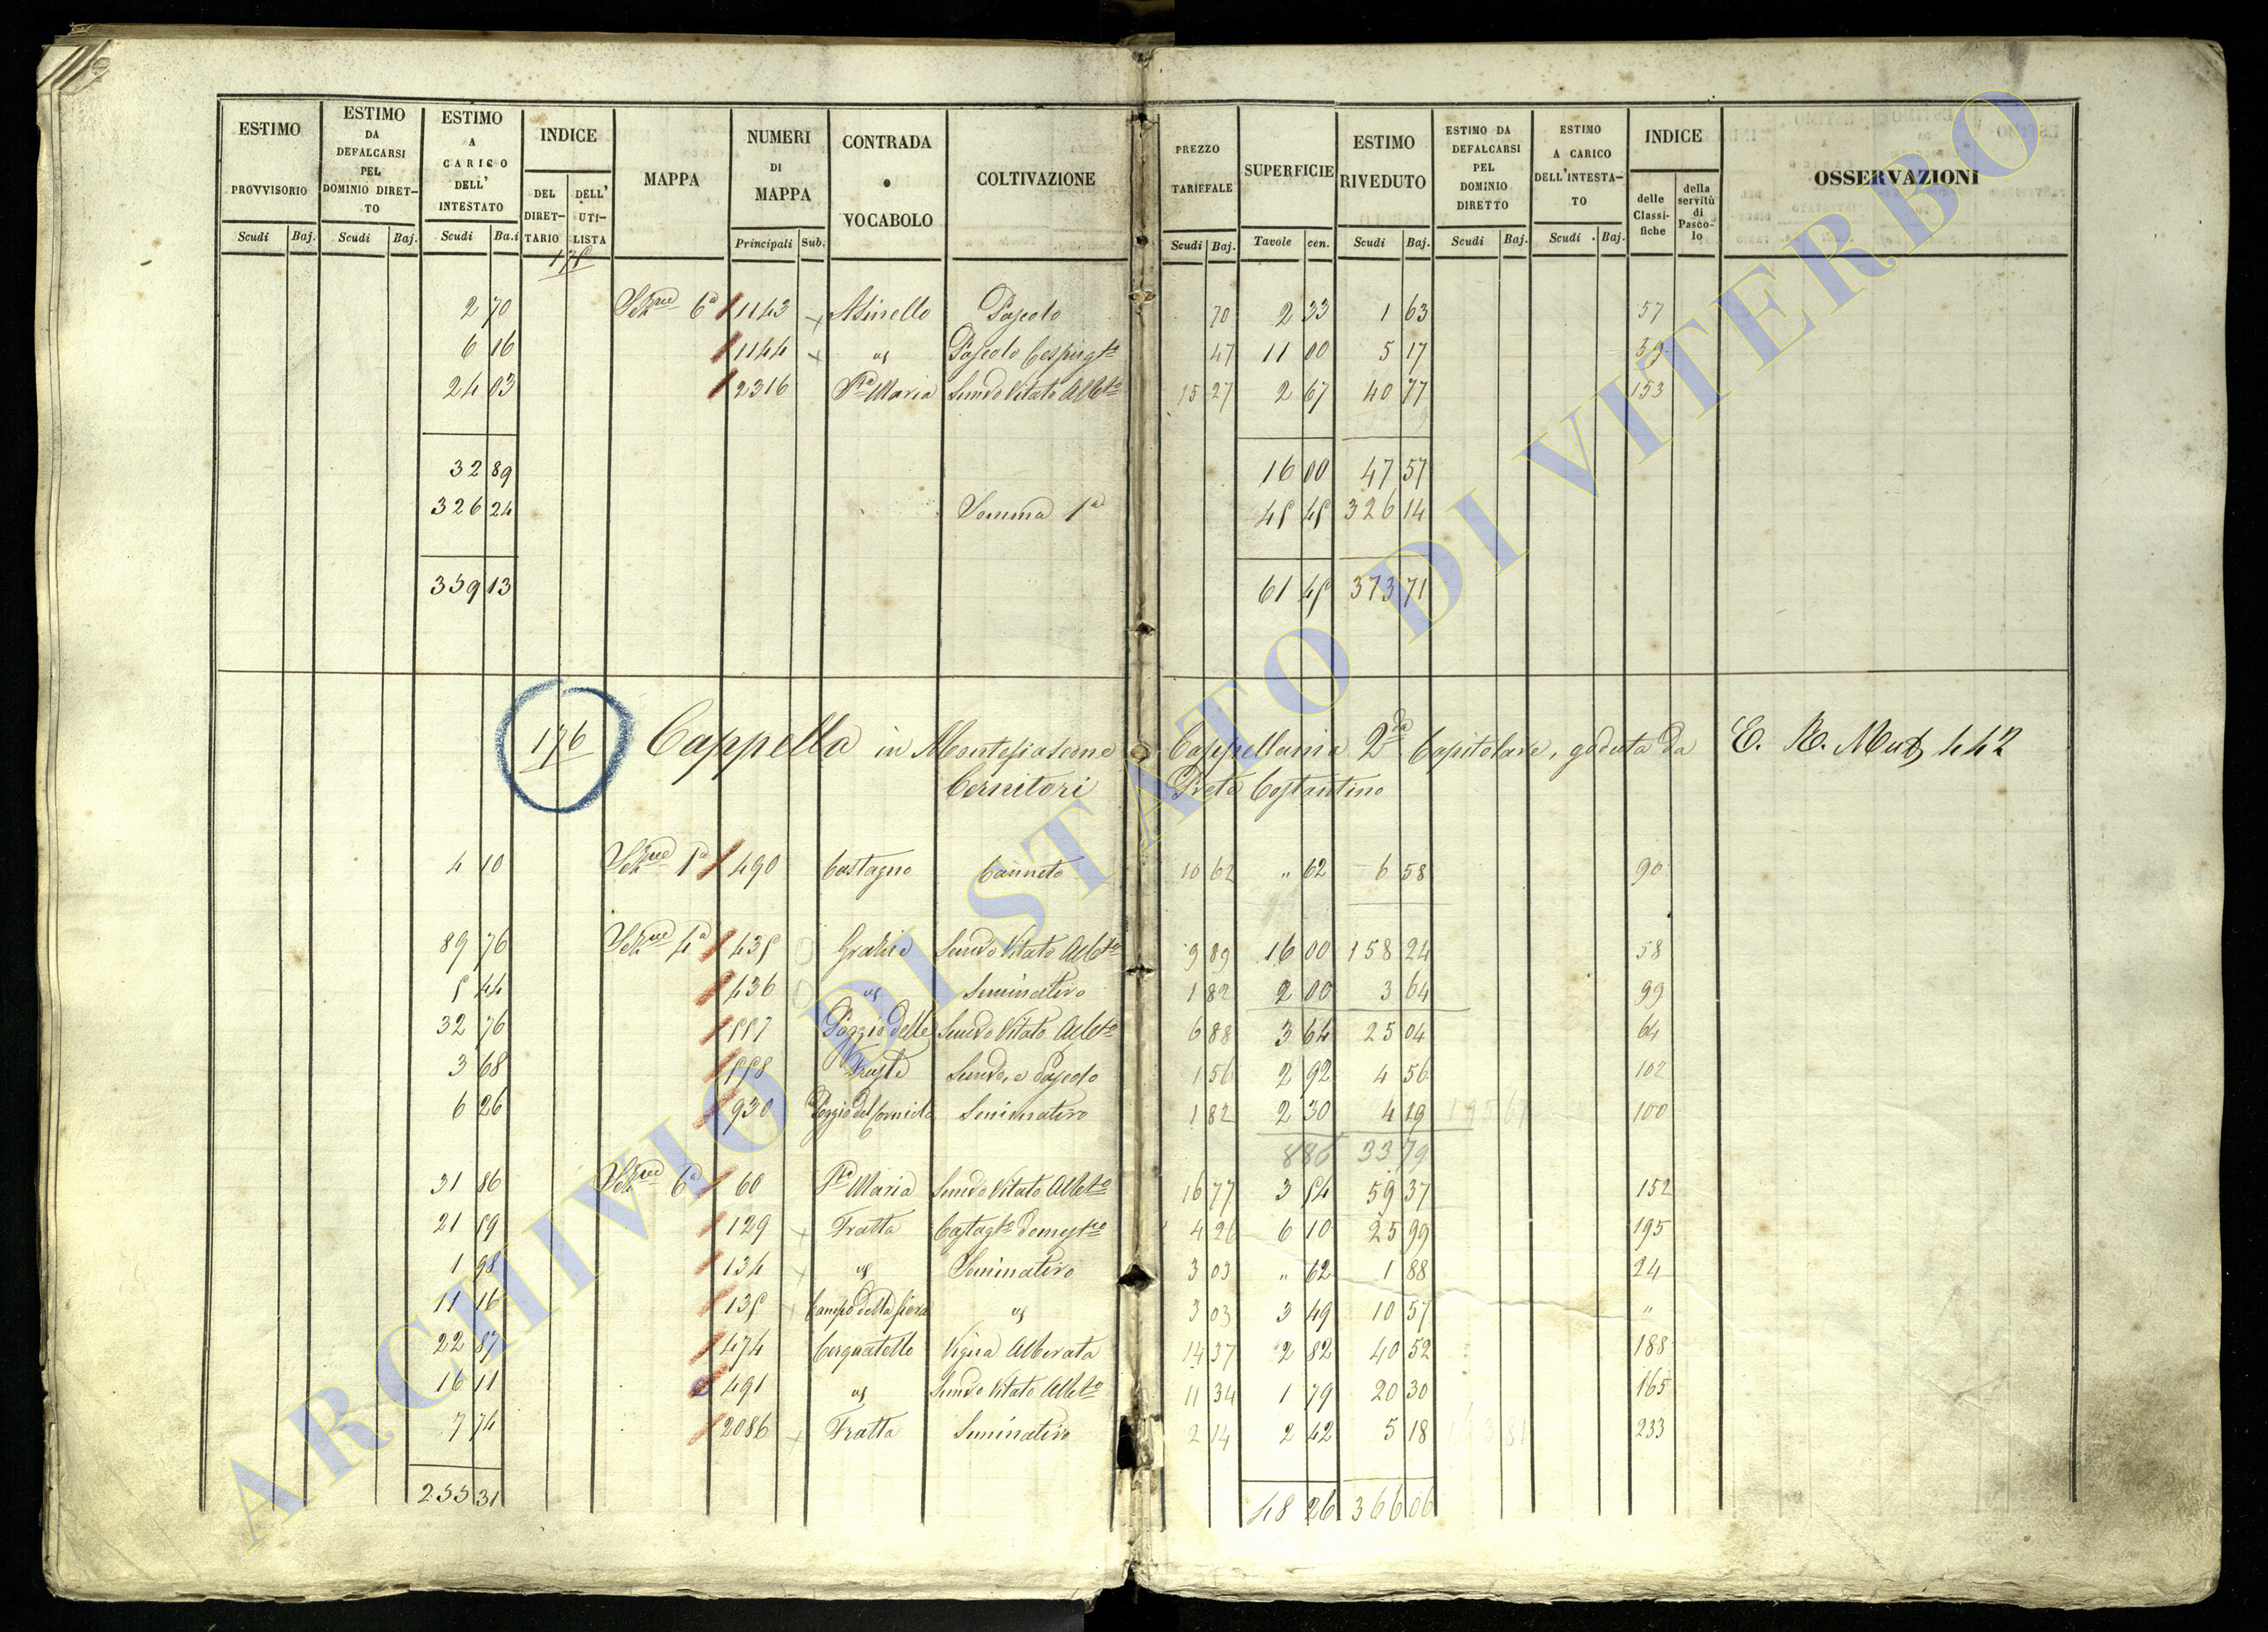 ESTIMO PROVVISORIO Scudi Baj.
ESTIMO DA DEFALCARSI PEL DOMINIO DIRET-TO Scudi Baj.
ESTIMO A CARICO DELL' INTESTATO Scudi Ba.i
INDICE DEL DIRET-TARIO DELL' UTI-LISTA
MAPPA
NUMERI DI MAPPA Principali Sub.
CONTRADA o VOCABOLO
COLTIVAZIONE
PREZZO TARIFFALE Scudi Baj.
SUPERFICIE Tavole cen.
ESTIMO RIVEDUTO Scudi Baj.
ESTIMO DA DEFALCARSI PEL DOMINIO DIRETTO Scudi Baj.
ESTIMO A CARICO DELL'INTESTA-TO Scudi Baj.
INDICE delle Classi-fiche della servitù di Pasco-lo
OSSERVAZIONI
175
2 70 Sezne 6a 1143 Asinello Pascolo 70 2 33 1 63 57
6 16 1144 " Pascolo Cespugto 47 11 00 5 17 59
24 03 2316 Sa Maria Semvo Vitato Albto 15 27 2 67 40 77 153
32 89 16 00 47 57
326 24 Somma 1a 45 45 326 14
359 13 61 45 373 71
176 Cappella in Montefiascone Cappellania 2da Capitolare, goduta da E. R. Mut 442
Cernitori Prete Costantino
4 10 Sezne 1a 490 Castagno Canneto 10 62 " 62 6 58 90
89 76 Sezne 4a 435 Grazie Semvo Vitato Albto 9 89 16 00 158 24 58
5 44 436 " Seminativo 1 82 2 00 3 64 99
32 76 557 Poggio delle Semvo Vitato Albto 6 88 3 64 25 04 64
3 68 558 Fruste Semvo, e Pascolo 1 56 2 92 4 56 102
6 26 930 Poggio del Cornicla Seminativo 1 82 2 30 4 19 100
8 86 33 79
31 86 Sezne 6a 60 Sa Maria Semvo Vitato Albto 16 77 3 54 59 37 152
21 59 129 Fratta Castagto domestco 4 26 6 10 25 99 195
1 98 134 " Seminativo 3 03 " 62 1 88 24
11 16 135 Campo della fiera " 3 03 3 49 10 57 "
22 87 474 Cerquatello Vigna Alberata 14 37 2 82 40 52 188
16 11 491 " Semvo Vitato Albto 11 34 1 79 20 30 165
7 74 2086 Fratta Seminativo 2 14 2 42 5 18 233
255 31 48 26 366 06
ARCHIVIO DI STATO DI VITERBO